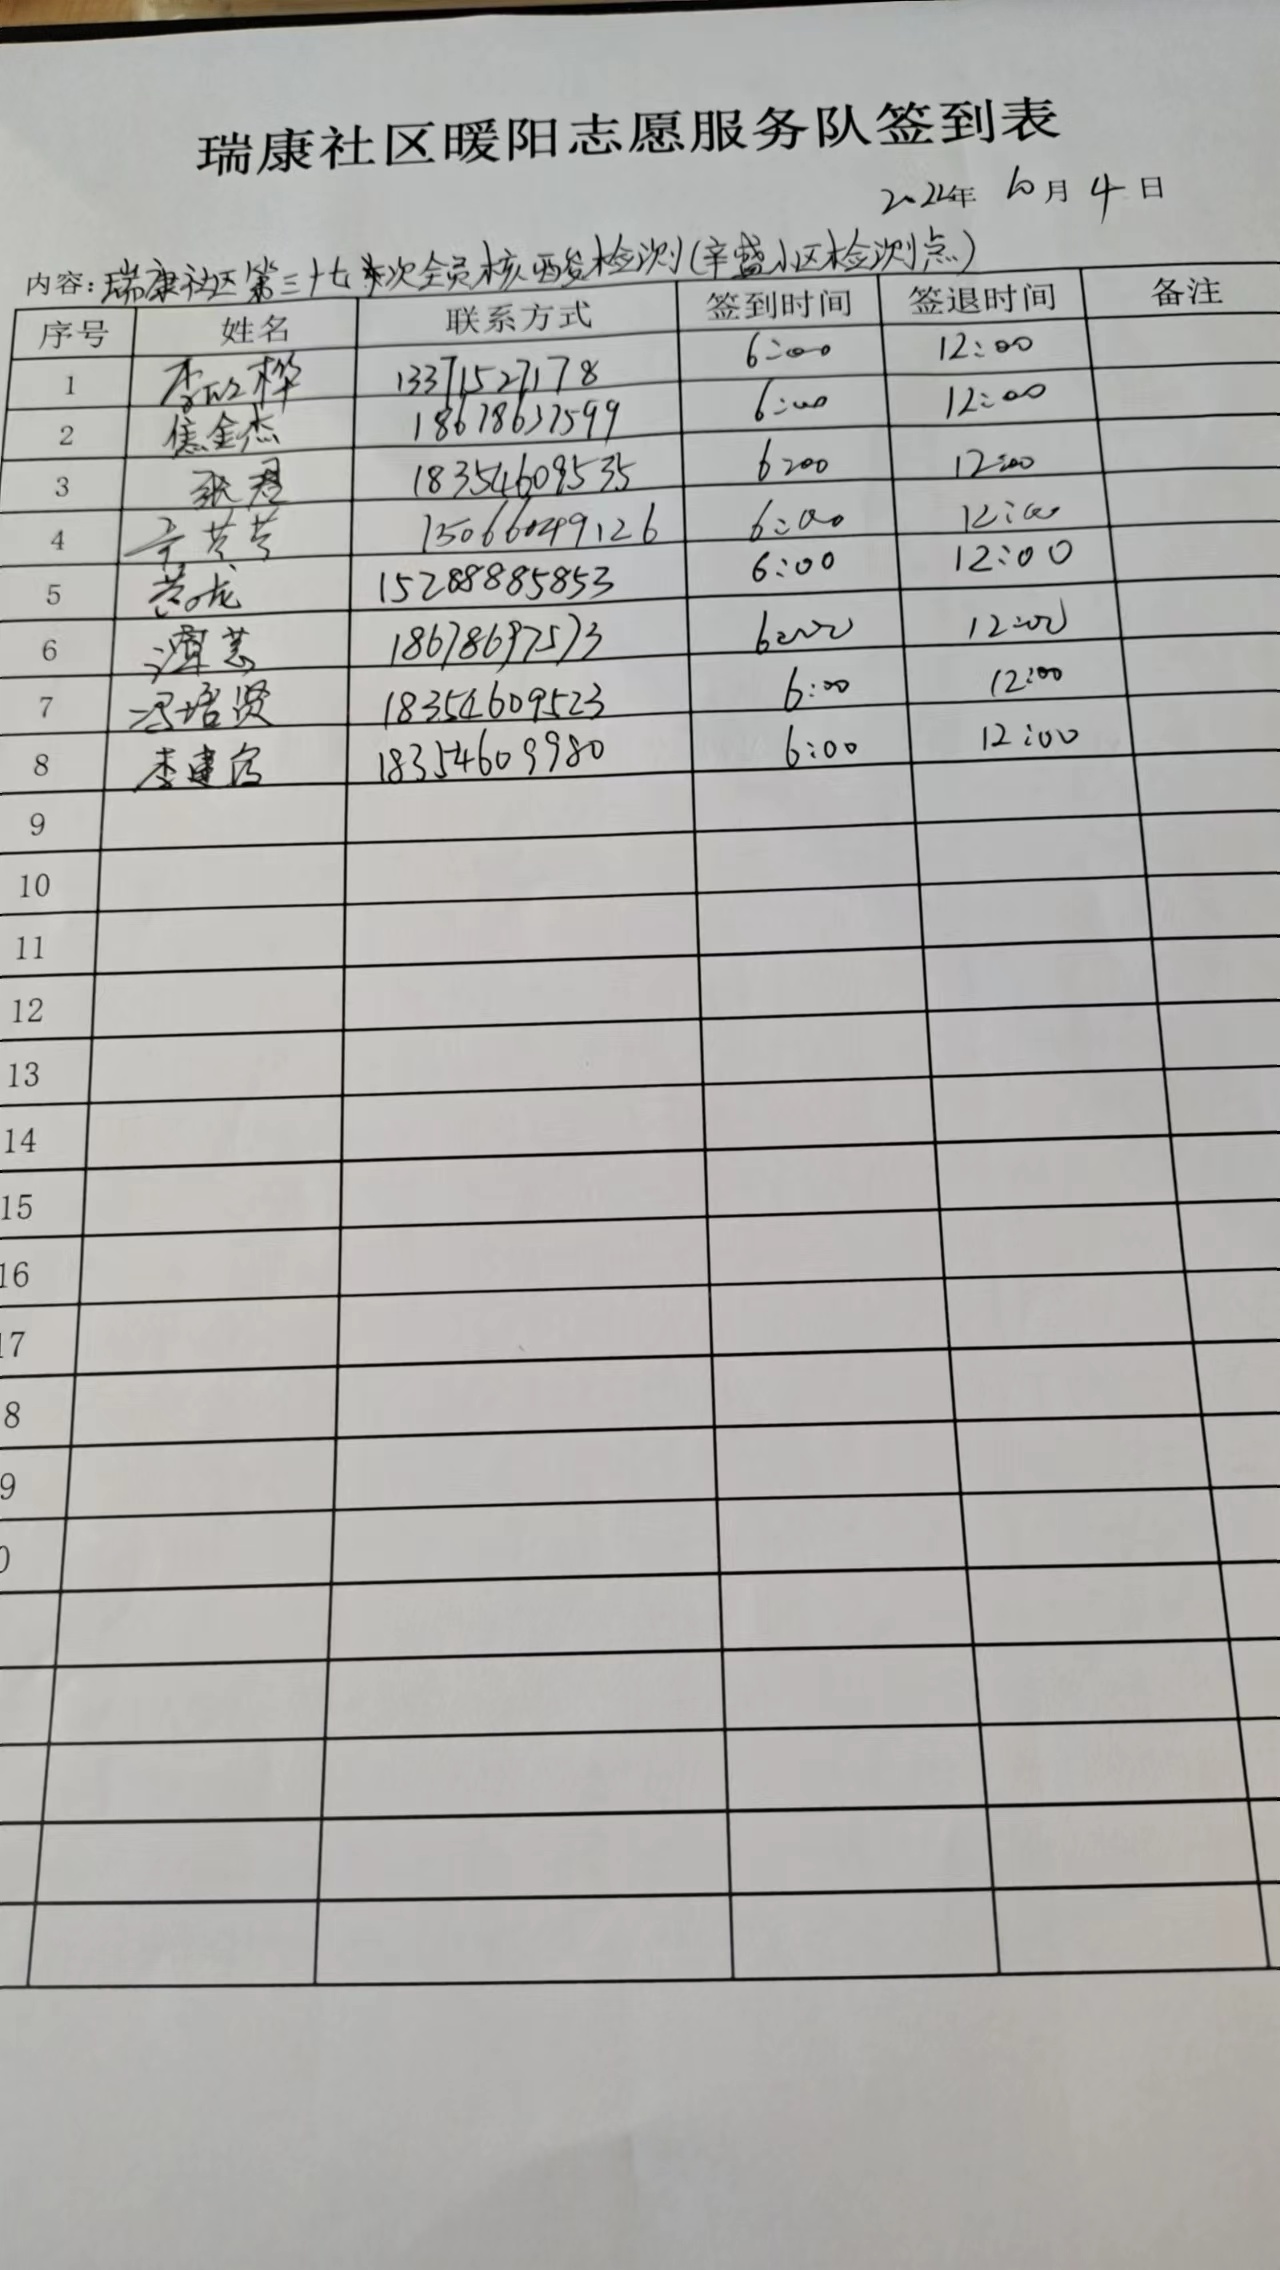 瑞康社区暖阳志愿服务队签到表
2022年 10月 4 日
内容:瑞康社区第三十七次全员核酸检测(辛盛小区检测点)
序号 姓名 联系方式 签到时间 签退时间 备注
1 李 桦 13371527178 6:00 12:00
2 焦金杰 18678637599 6:00 12:00
3 张君 18354609535 6:00 12:00
4 芳芳 15066049126 6:00 12:00
5 黄 龙 15288885853 6:00 12:00
6 谭慧 18678697573 6:00 12:00
7 冯培贤 18354609523 6:00 12:00
8 李建 18354609980 6:00 12:00
9
10
11
12
13
14
15
16
17
8
9
0